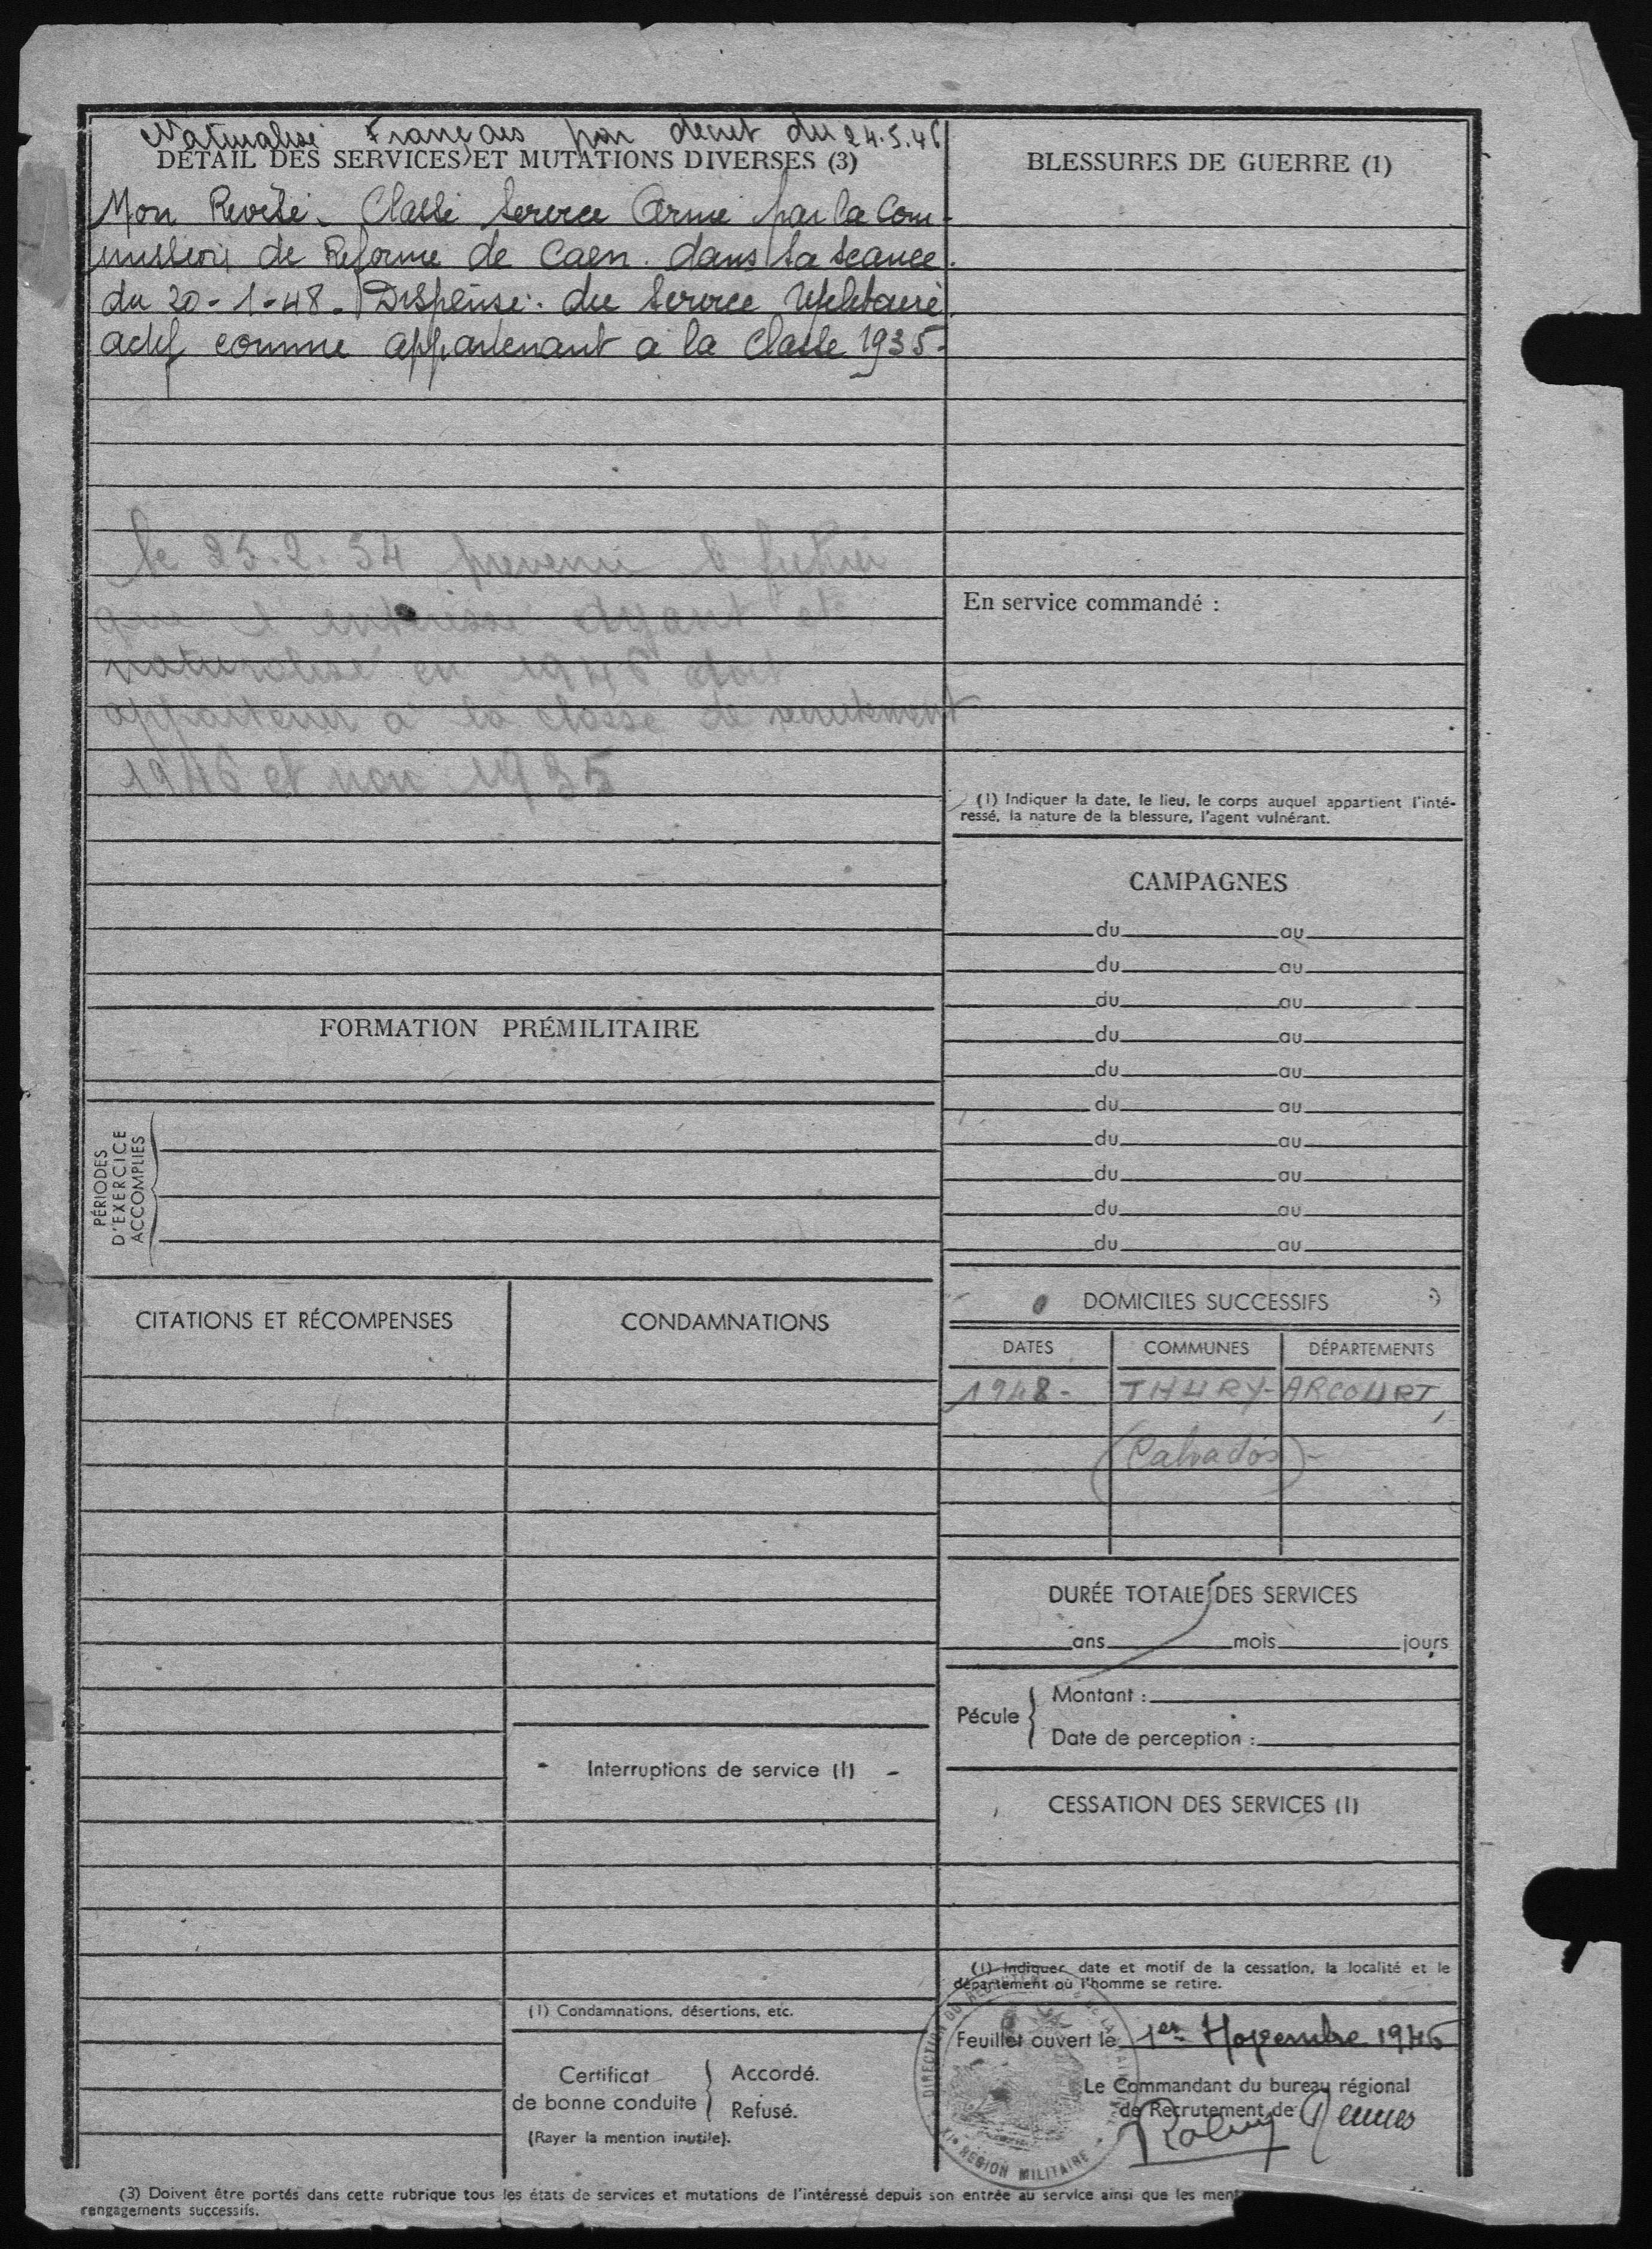 Naturalisé Français par décret du 24.5.46
DÉTAIL DES SERVICES ET MUTATIONS DIVERSES (3)
Non Revisé. Classé Service Armé par la Com-
mission de Reforme de Caen. dans sa seance.
du 20-1-48. Dispensé. du Service Militaire
actif comme appartenant à la Classe 1935-
le 25.2.54 prevenu le fichier
que l'interessé ayant été
naturalisé en 1946 doit
appartenir à la classe de recrutement
1946 et non 1935
FORMATION PRÉMILITAIRE
PÉRIODES
D'EXERCICE
ACCOMPLIES
CITATIONS ET RÉCOMPENSES
CONDAMNATIONS
Interruptions de service (1)
(1) Condamnations, désertions, etc.
Certificat
de bonne conduite
Accordé.
Refusé.
(Rayer la mention inutile).
BLESSURES DE GUERRE (1)
En service commandé :
(1) Indiquer la date, le lieu, le corps auquel appartient l'inté-
ressé, la nature de la blessure, l'agent vulnérant.
CAMPAGNES
du au
du au
du au
du au
du au
du au
du au
du au
du au
du au
DOMICILES SUCCESSIFS
DATES COMMUNES DÉPARTEMENTS
1948- THURY-ARCOURT,
(Calvados)-
DURÉE TOTALE DES SERVICES
ans mois jours
Pécule
Montant :
Date de perception :
CESSATION DES SERVICES (1)
(1) Indiquer date et motif de la cessation, la localité et le
département où l'homme se retire.
Feuillet ouvert le 1er Novembre 1946
Le Commandant du bureau régional
de Recrutement de Rennes
DIRECTION DU
RÉGION MILITAIRE
(3) Doivent être portés dans cette rubrique tous les états de services et mutations de l'intéressé depuis son entrée au service ainsi que les
rengagements successifs.